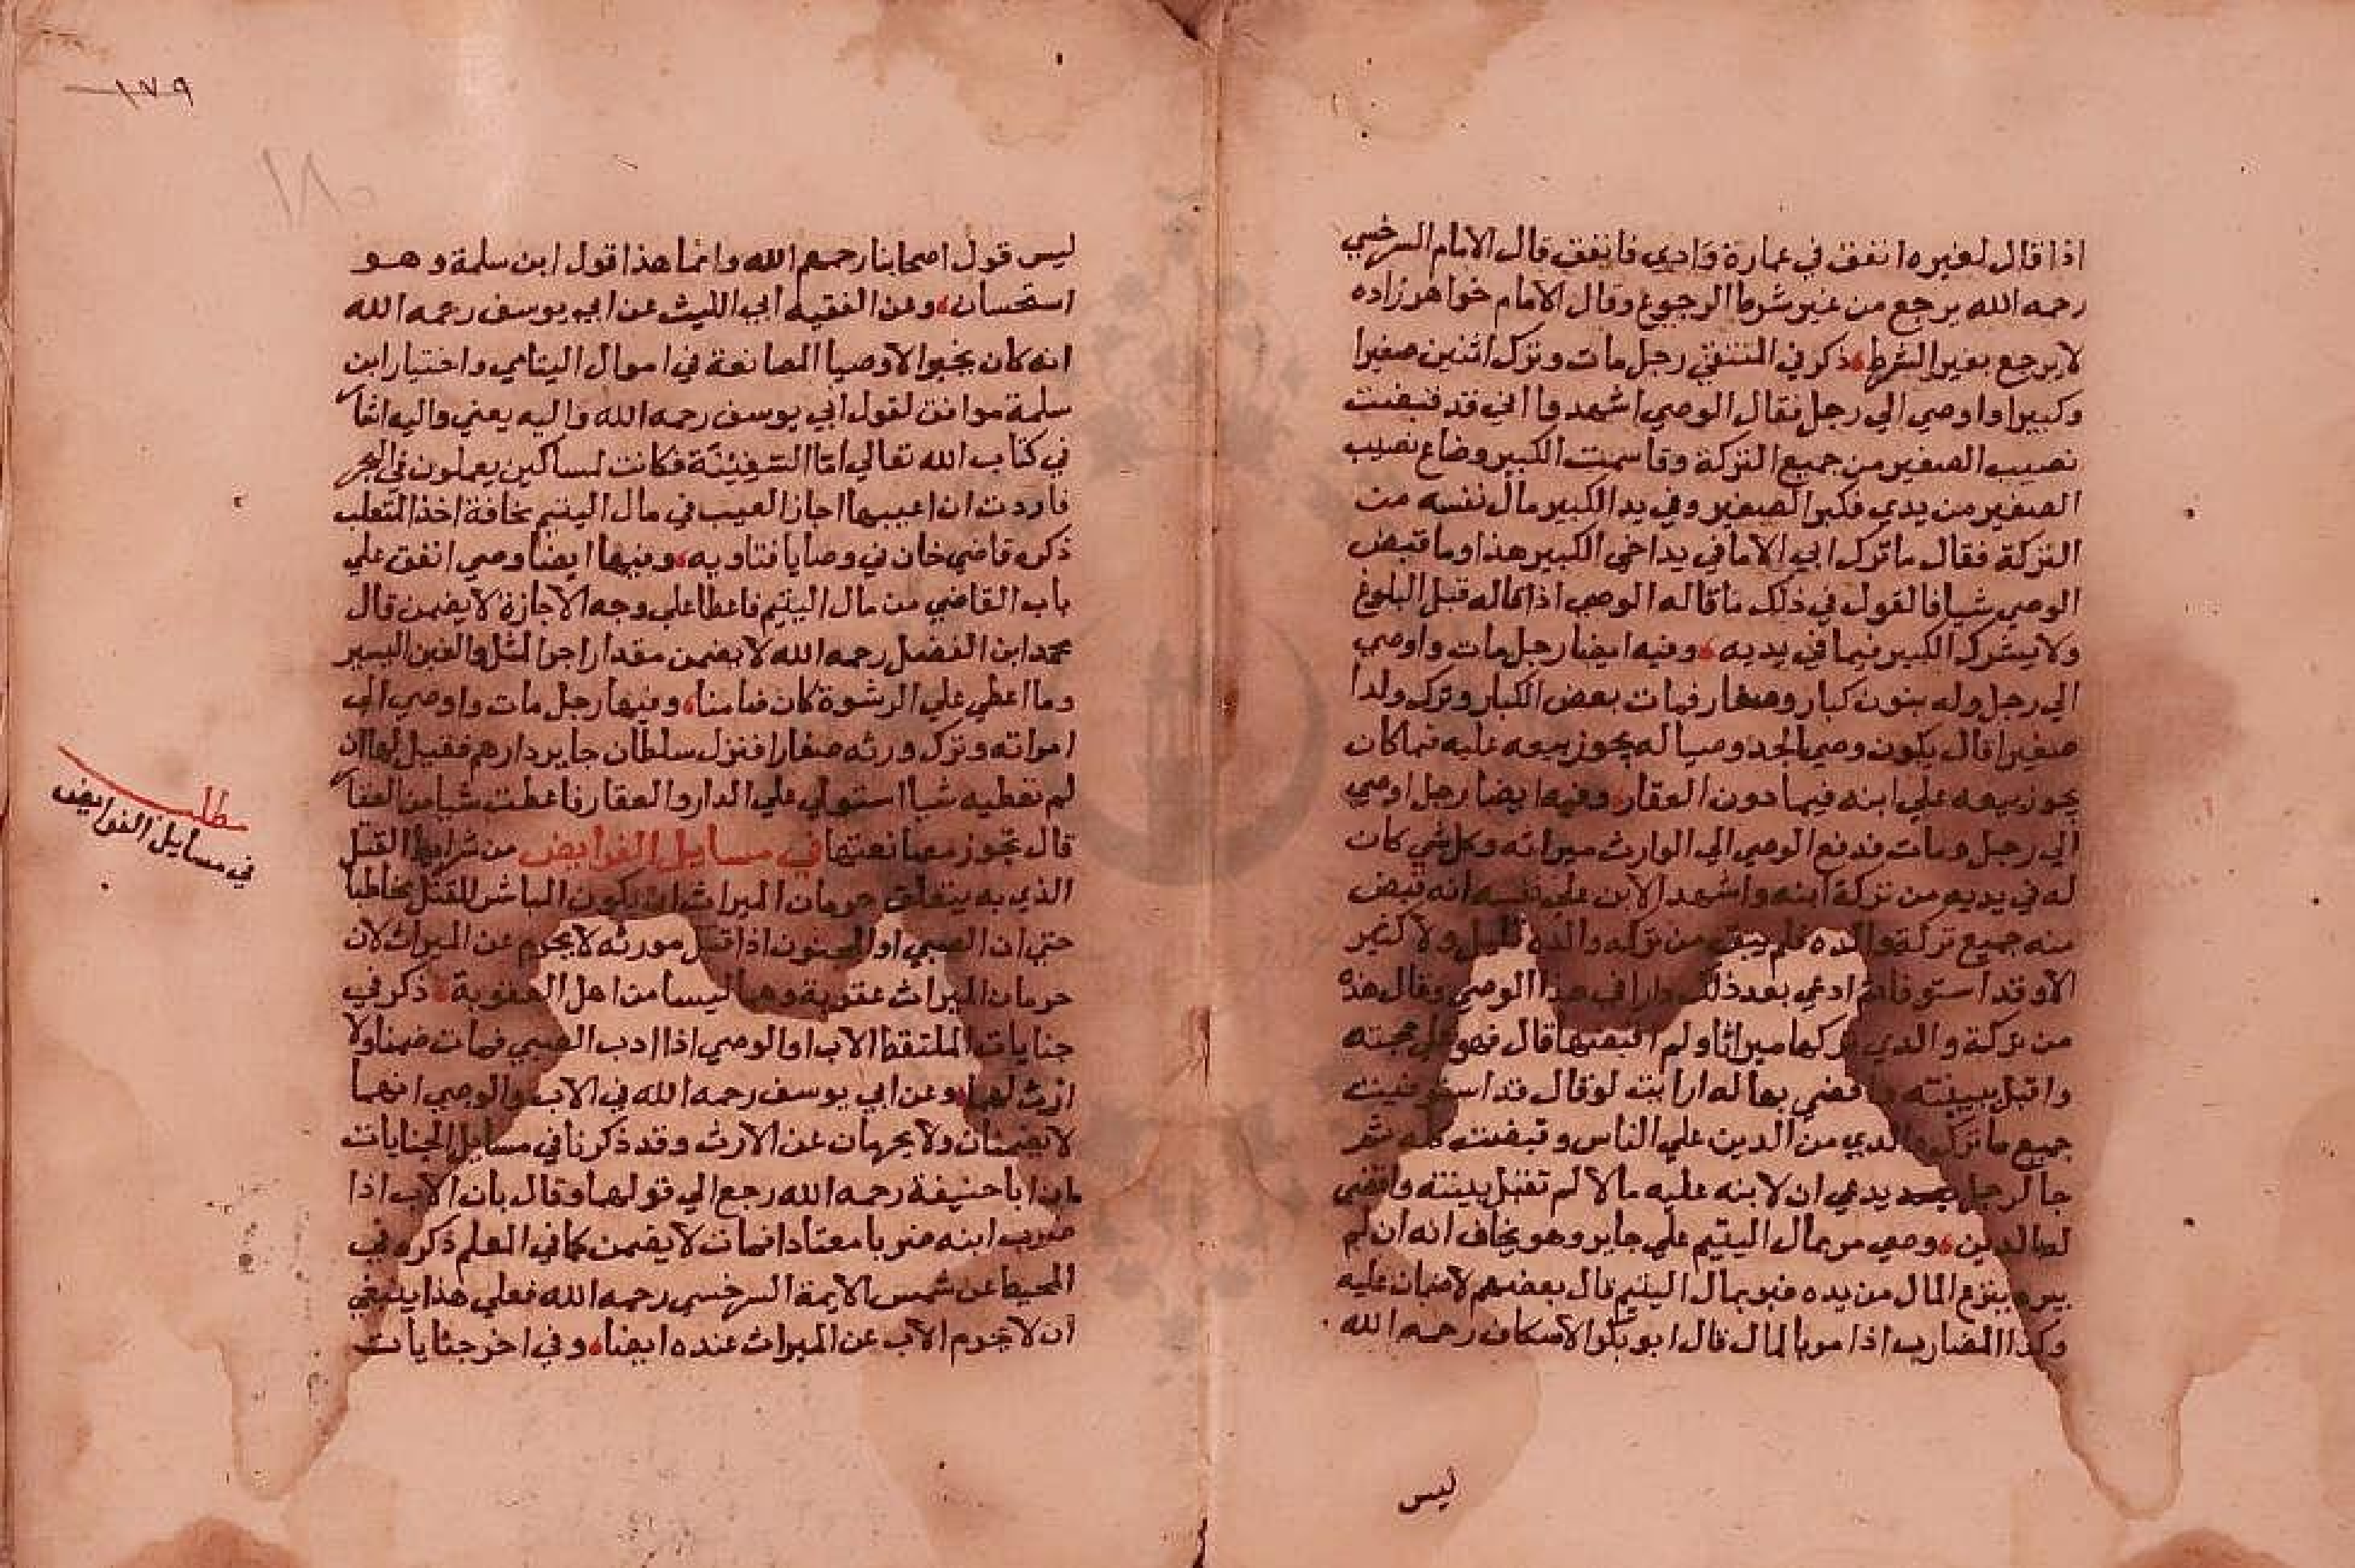 اذا قال لغيره انفق في عمارة دادي فانفق قال الامام السرخسي
رحمه الله يرجع من غير شرط الرجوع وقال الامام خواهر زاده
لا يرجع بغير الشرط ذكر في المنتقي رجل مات وترك اثنين صغيرا
وكبيرا واوصي الي رجل فقال الوصي اشهدوا اني قد قبضت
نصيب الصغير من جميع التركة وقاسمت الكبير وضاع نصيب
الصغير من يدي فكبر الصغير وفي يد الكبير مال نفسه من
التركة فقال ما ترك ابي الا ما في يد اخي الكبير هذا وما قبض
الوصي شيا فالقول في ذلك ما قاله الوصي اذا قاله قبل البلوغ
ولا يشرك الكبير فيما في يديه وفيه ايضا رجل مات واوصي
الي رجل وله بنون كبار وصغار فمات بعض الكبار وترك ولدا
صغيرا قال يكون وصي الجد وصيا له يجوز بيعه عليه فما كان
يجوز بيعه علي ابنه فيما دون العقار وفيه ايضا رجل اوصي
الي رجل ومات فدفع الوصي الي الوارث ميراثه وكل شي كان
له في يديه من تركة ابنه واشهد الابن علي نفسه انه قبض
منه جميع تركة والده فلم يبق من تركه والده قليل ولا كثير
الا وقد استوفاه ثم ادعي بعد ذلك دارا في هذا الوصي وقال هذه
من تركة والدي تركها ميراثا ولم اقبضها قال فهو علي حجته
واقبل بينته واقضي بها له ارايت لو قال قد استوفيت
جميع ما ترك والدي من الدين علي الناس وقبضت كله ثم
جا لرجل يدعي ان لابنه عليه مالا لم تقبل بينته واقضي
لها الدين وصي مر بمال اليتيم علي جاير وهو يخاف انه ان لم
يبره ينزع المال من يده فبر بمال اليتيم قال بعضهم لا ضمان عليه
وكذا المضارب اذا مر بالمال قال ابو بكر الاسكاف رحمه الله
ليس
١٧٩
١٨٠
ليس قول اصحابنا رحمهم الله وانما هذا قول ابن سلمة وهو
استحسان وعن الفقيه ابي الليث عن ابي يوسف رحمه الله
انه كان يجيز الاوصيا المصانعة في اموال اليتامي واختيار ابن
سلمة موافق لقول ابي يوسف رحمه الله واليه يعني واليه اشا
في كتاب الله تعالي امّا السّفِيْنَة فكانت لمساكين يعملون في البحر
فاردت ان اعيبها اجاز العيب في مال اليتيم مخافة اخذ المتغلب
ذكره قاضي خان في وصايا فتاويه وفيها ايضا وصي انفق علي
باب القاضي من مال اليتيم فاعطا علي وجه الاجازة لا يضمن قال
محمد ابن الفضل رحمه الله لا يضمن مقدار اجر المثل والغبن اليسير
وما اعطي علي الرشوة كان ضامنا وفيها رجل مات واوصي الي
امراته وترك ورثه صغارا فنزل سلطان جاير دارهم فقيل لها ان
لم تعطيه شيا استولي علي الدار والعقار فاعطت شيا من العقا
قال تجوز مصانعتها في مسايل الفرايض من شرايط القتل
الذي به يتعلق حرمان الميراث ان يكون المباشر للقتل مخاطبا
حتي ان الصبي او المجنون اذا قتل مورثه لا يحرم عن الميراث لان
حرمان الميراث عقوبة وهما ليسا من اهل العقوبة ذكر في
جنايات الملتقط الاب او الوصي اذا ادب الصبي فمات ضمنا ولا
ارث لهما وعن ابي يوسف رحمه الله في الاب والوصي انهما
لا يضمنان ولا يحرمان عن الارث وقد ذكرنا في مسايل الجنايات
ان ابا حنيفة رحمه الله رجع الي قولهما وقال بان الاب اذا
ضرب ابنه ضربا معتادا فمات لا يضمن كما في المعلم ذكره في
المحيط عن شمس الايمة السرخسي رحمه الله فعلي هذا ينبغي
ان لا يحرم الاب عن الميراث عنده ايضا وفي اخر جنايات
مطلب
في مسايل الفرايض